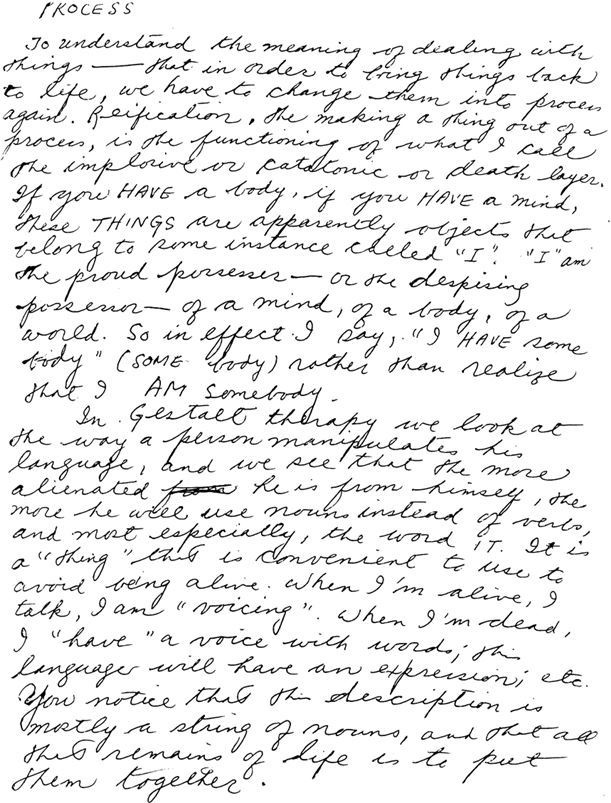 PROCESS
To understand the meaning of dealing with
things — that in order to bring things back
to life, we have to change them into process
again. Reification, the making a thing out of a
process, is the functioning of what I call
the implosive or catatonic or death layer.
If you HAVE a body, if you HAVE a mind,
these THINGS are apparently objects that
belong to some instance called "I". "I" am
the proud possesser — or the despising
possessor — of a mind, of a body, of a
world. So in effect I say, "I HAVE some
body" (SOME body) rather than realize
that I AM somebody.
In Gestalt therapy we look at
the way a person manipulates his
language, and we see that the more
alienated he is from himself, the
more he will use nouns instead of verbs,
and most especially, the word IT. It is
a "thing" that is convenient to use to
avoid being alive. When I'm alive, I
talk, I am "voicing". When I'm dead,
I "have" a voice with words; this
language will have an expression; etc.
You notice that this description is
mostly a string of nouns, and that all
that remains of life is to put
them together.